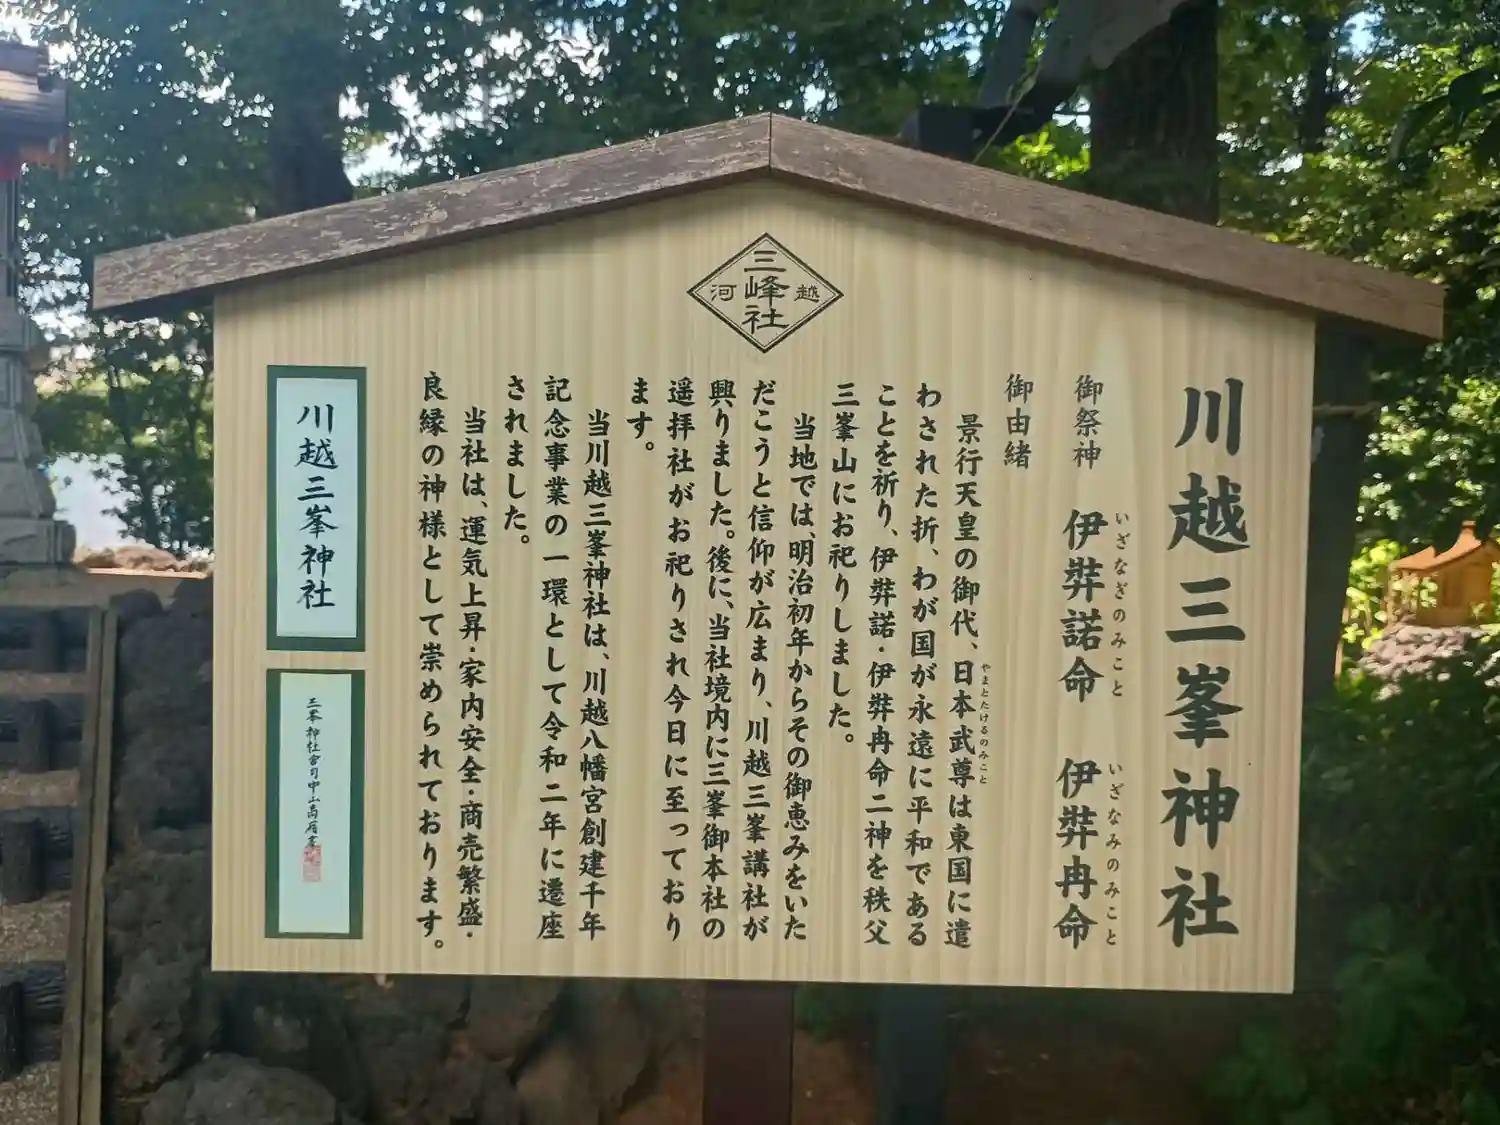 三峰社
河越
川越三峯神社
御祭神 伊弉諾命 伊弉冉命
いざなぎのみこと いざなみのみこと
御由緒
景行天皇の御代、日本武尊は東国に遣
やまとたけるのみこと
わされた折、わが国が永遠に平和である
ことを祈り、伊弉諾・伊弉冉命二神を秩父
三峯山にお祀りしました。
当地では、明治初年からその御恵みをいた
だこうと信仰が広まり、川越三峯講社が
興りました。後に、当社境内に三峯御本社の
遥拝社がお祀りされ今日に至っており
ます。
当川越三峯神社は、川越八幡宮創建千年
記念事業の一環として令和二年に遷座
されました。
当社は、運気上昇・家内安全・商売繁盛・
良縁の神様として崇められております。
川越三峯神社
三峯神社宮司中山高